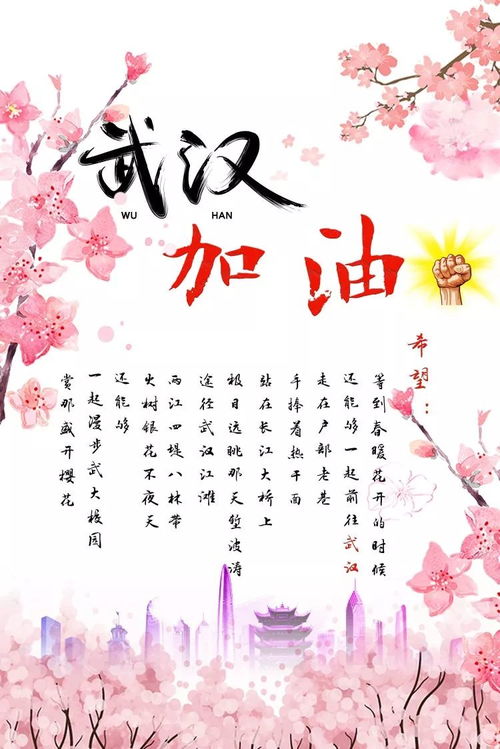 武汉
WU HAN
加油
希望：
等到春暖花开的时候
还能够一起前往武汉
走在户部老巷
手捧着热干面
站在长江大桥上
极目远眺那天堑波涛
途径武汉江滩
两江四堤八林带
火树银花不夜天
还能够
一起漫步武大校园
赏那盛开樱花